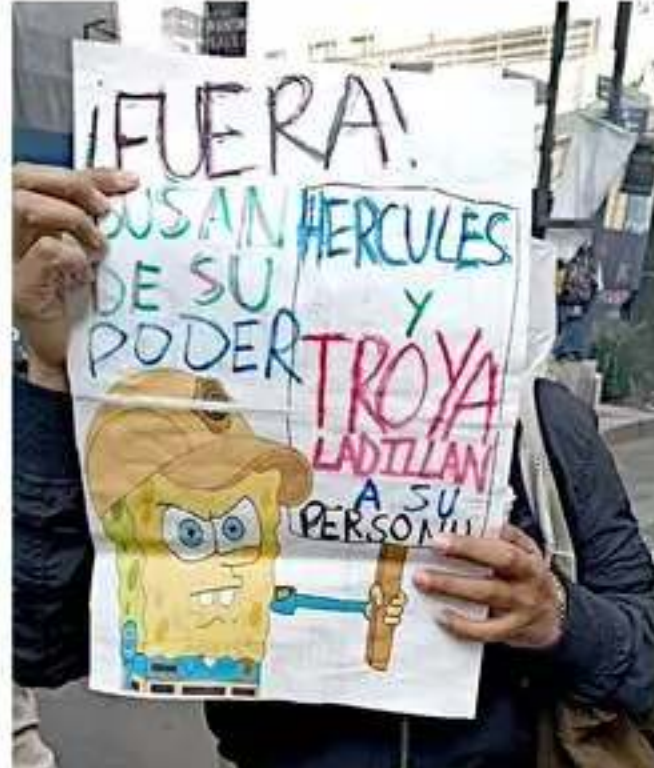 ¡FUERA!
USAN
DE SU
PODER
HERCULES
Y
TROYA
LADILLAN
A SU